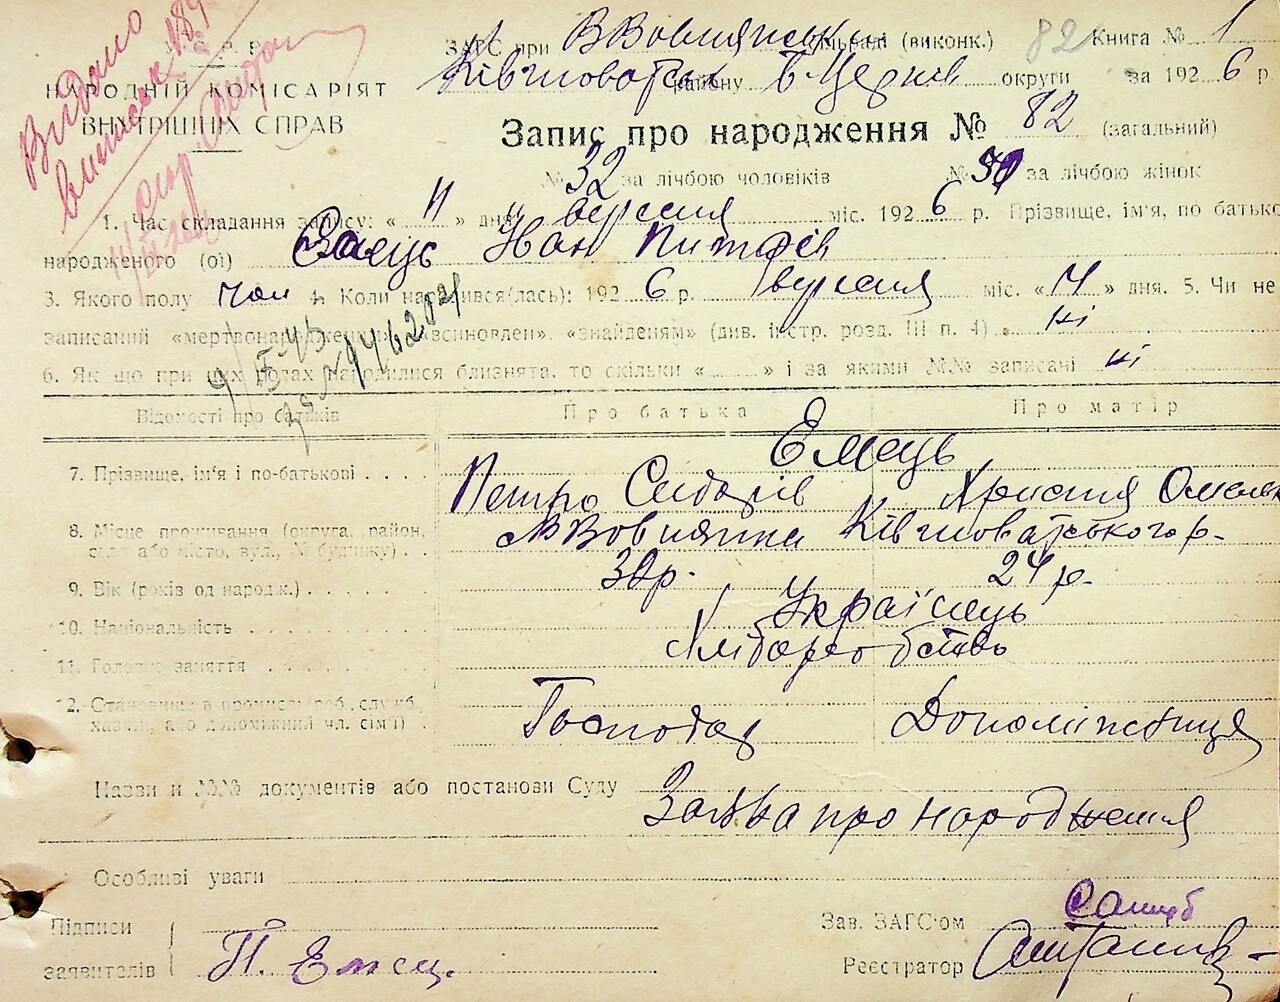 У. С. Р. Р.
НАРОДНІЙ КОМІСАРІЯТ
ВНУТРІШНІХ СПРАВ
Видано
виписка
ЗАГС при ВВовнянськ сільраді (виконк.) 82 Книга № 1
Ківшоватськ району БЦерків округи за 1926 р.
Запис про народження № 82 (загальний)
№ 32 за лічбою чоловіків № за лічбою жінок
1. Час складання запису: « 11 » дня вересня міс. 1926 р. Прізвище, ім'я, по батькові
народженого (ої) Іван Питрів
3. Якого полу чол 4. Коли народився(лась): 1926 р. вересня міс. « » дня. 5. Чи не
записаний «мертвонароджений», «всиновлен», «знайденям» (див. інстр. розд. III п. 4) ні
6. Як що при цих родах народилися близнята, то скільки « » і за якими №№ записані ні
Відомості про батьків Про батька Про матір
Емець
7. Прізвище, ім'я і по-батькові Петро Сидорів Христя Омельк
8. Місце проживання (округа, район,
село або місто, вул., № будинку) ВВовнянка Ківшоватського р-
9. Вік (років од народж.) 30р. 24 р.
10. Національність Українець
11. Головне заняття Хліборобство
12. Становище в промислі (роб., служб.,
хазяїн, або допоміжний чл. сім'ї) Господар Допоміжниця
Назви и №№ документів або постанови Суду Заява про народження
Особливі уваги
Підписи
заявителів П. Емец.
Зав. ЗАГС'ом
Реєстратор